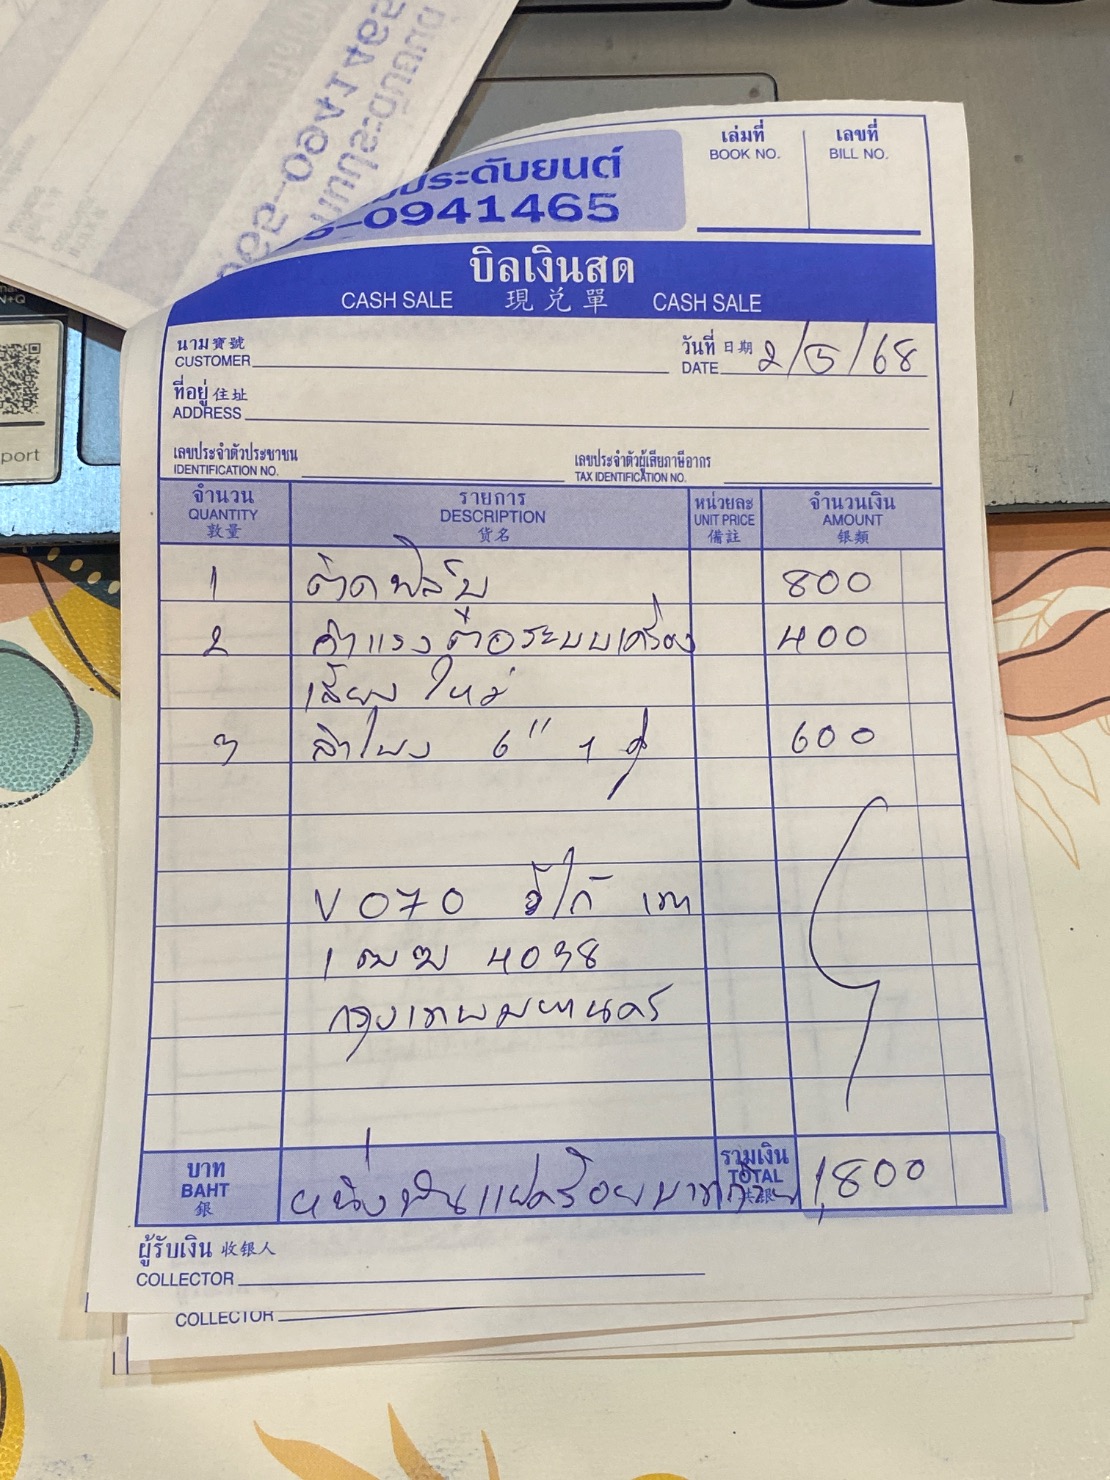 ประดับยนต์
-0941465
เล่มที่
BOOK NO.
เลขที่
BILL NO.
บิลเงินสด
CASH SALE 現兌單 CASH SALE
นาม寶號
CUSTOMER
วันที่ 日期
DATE 2/5/68
ที่อยู่ 住址
ADDRESS
เลขประจำตัวประชาชน
IDENTIFICATION NO.
เลขประจำตัวผู้เสียภาษีอากร
TAX IDENTIFICATION NO.
จำนวน
QUANTITY
數量
รายการ
DESCRIPTION
货名
หน่วยละ
UNIT PRICE
備註
จำนวนเงิน
AMOUNT
银類
1 ติดฟิล์ม 800
2 ค่าแรงต่อระบบเครื่อง 400
เสียงใหม่
3 ลำโพง 6" 1 คู่ 600
V070 วีโก้ เทา
1ฒฆ 4038
กรุงเทพมหานคร
บาท
BAHT
銀
หนึ่งพันแปดร้อยบาทถ้วน
รวมเงิน
TOTAL
1,800
ผู้รับเงิน 收银人
COLLECTOR
COLLECTOR
port
N+Q